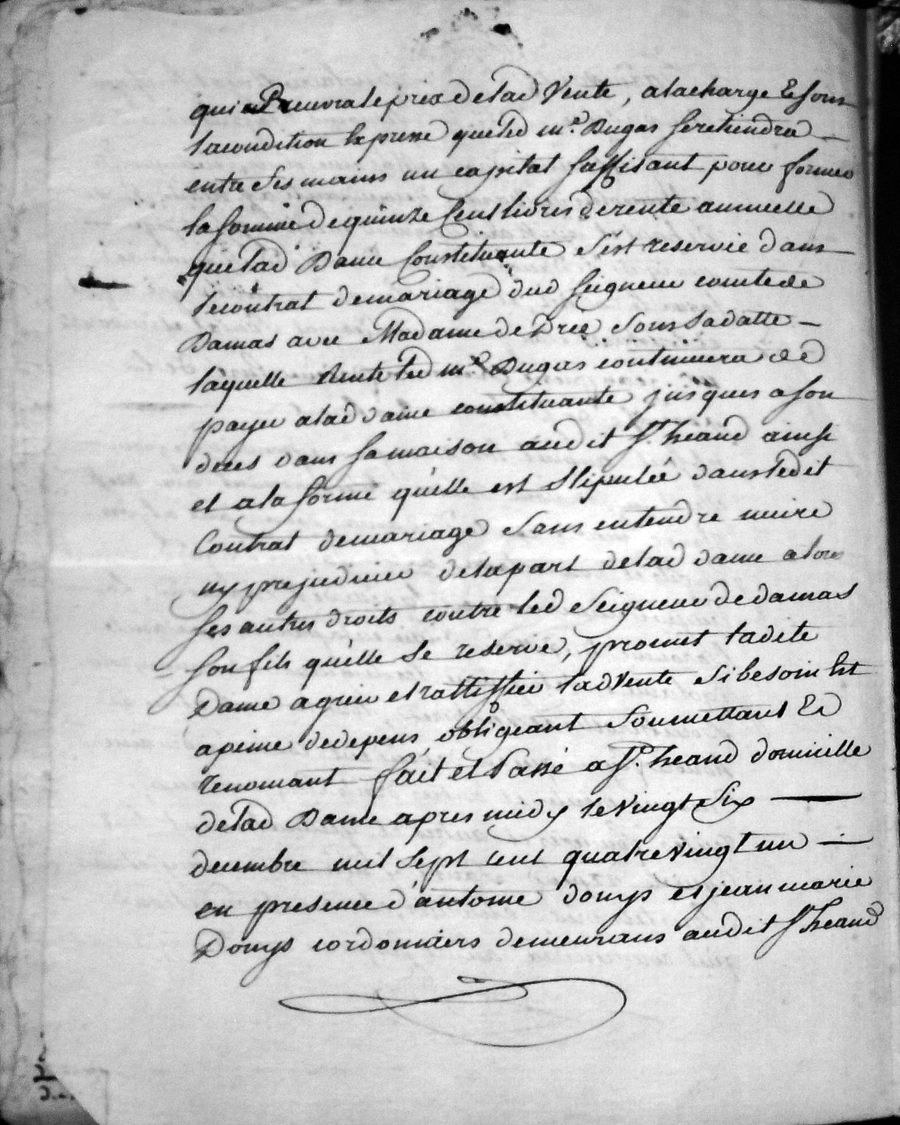 qui a Recuvra le prix de lad Vente, a la charge Et sous
la condition Expresse que led m.e Dugas se retiendra
entre ses mains un capital suffisant pour former
la somme de quinze Cens livres de rente annuelle
que lad Dame Constituante s'est reservée dans
le contrat de mariage dud Seigneur comte de
Damas avec Madame de Drée Sous Sa datte
laquelle Rente led m.e Dugas continuera de
payer a lad dame constituante jusques a son
deces dans sa maison audit S.t heand ainsi
et a la forme qu'elle est Stipulée dans ledit
Contrat de mariage Sans entendre nuire
ny prejudicier de la part de lad dame a tous
ses autres droits contre led Seigneur de damas
son fils qu'elle se reserve, promet ladite
Dame agreer et rattiffier lad Vente Si besoin Est
a peine de depens obligeant Soumettant Et
renonçant fait et Passé a S.t heand domicille
de lad Dame apres midy le Vingt Six
decembre mil Sept cent quatre vingt un
en presence d'antoine Donys et jean marie
Donys cordonniers demeurans audit S.t heand